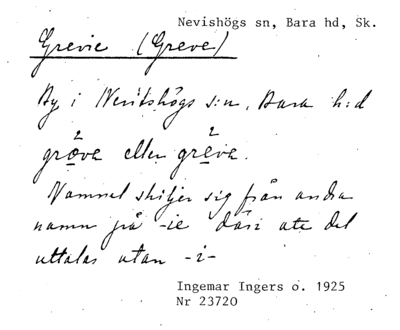 Nevishögs sn, Bara hd, Sk.
Grevie (Greve)
By i Nevitshögs s:n, Bara h:d
grǫve eller greve.
Namnet skiljer sig från andra
namn på -ie däri att det
uttalas utan -i-
Ingemar Ingers o. 1925
Nr 23720